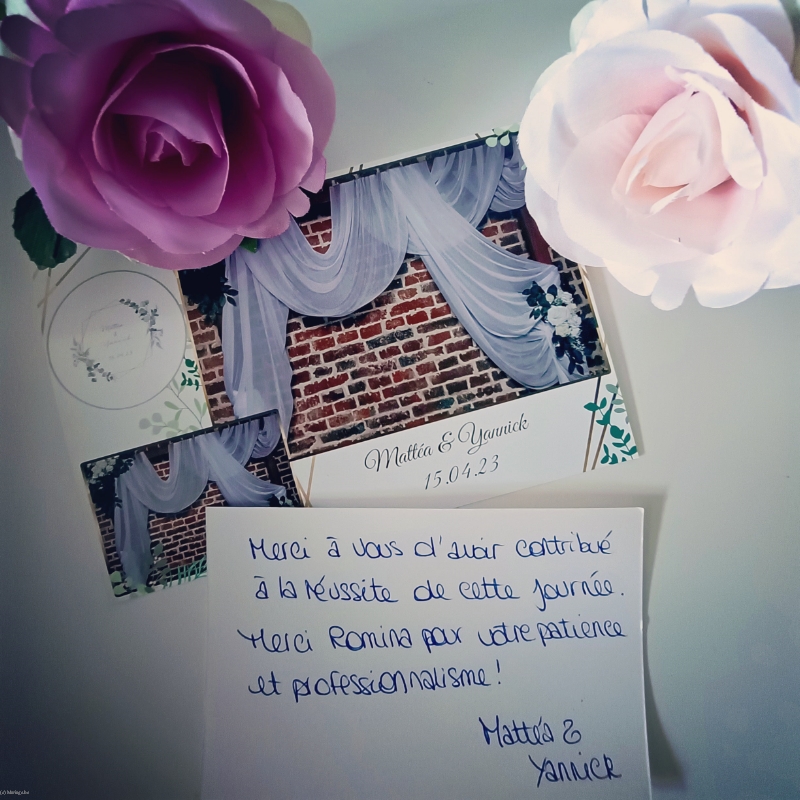 Mattéa & Yannick
15.04.23
Merci à vous d'avoir contribué
à la réussite de cette journée.
Merci Romina pour votre patience
et professionnalisme !
Mattéa &
Yannick